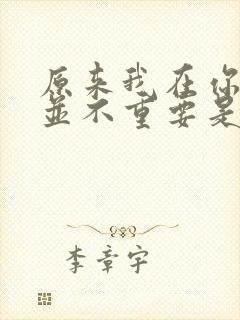 原来我在你
并不重要是
李章宇